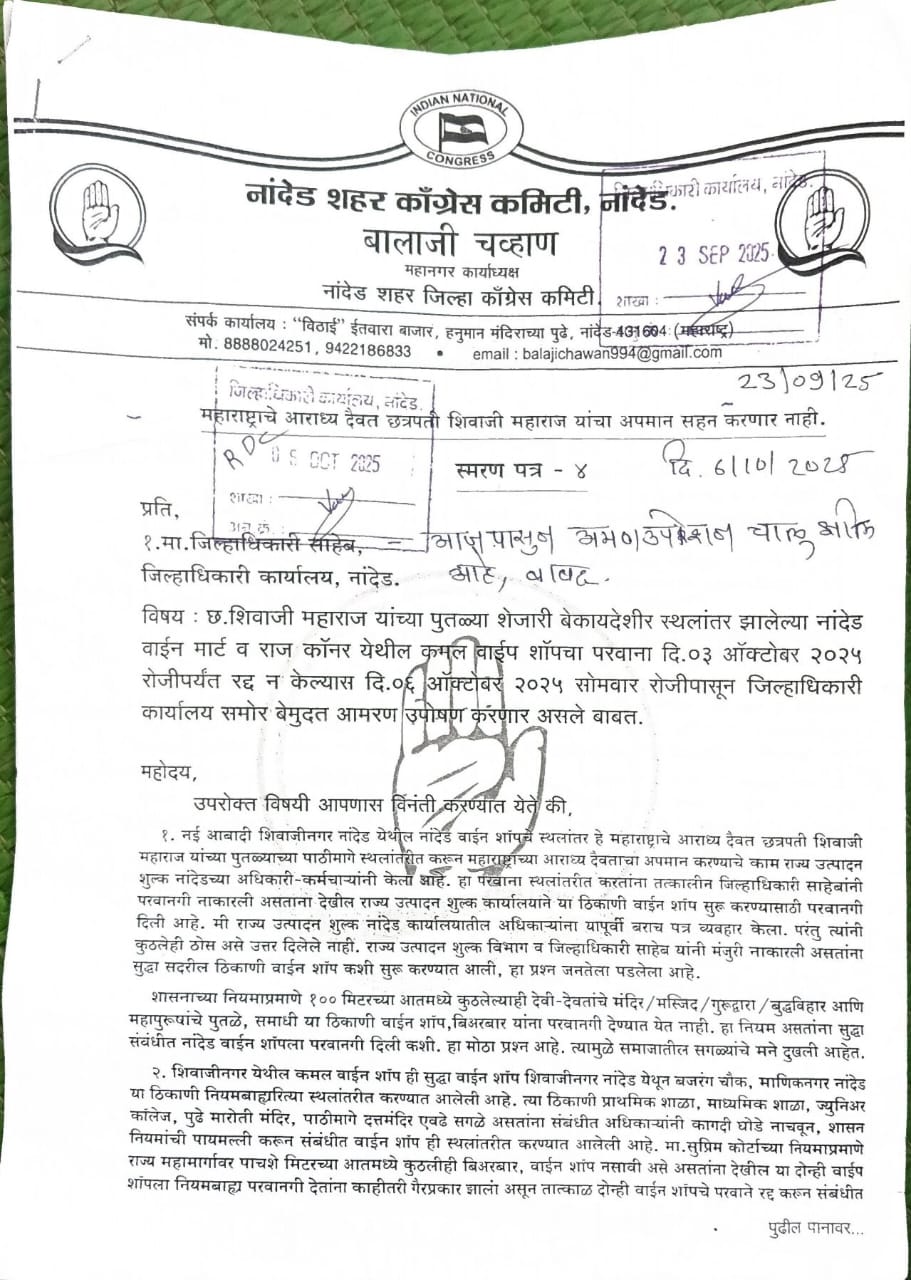 INDIAN NATIONAL
CONGRESS
नांदेड शहर काँग्रेस कमिटी, नांदेड.
जिल्हाधिकारी कार्यालय, नांदेड.
बालाजी चव्हाण
महानगर कार्याध्यक्ष
23 SEP 2025
नांदेड शहर जिल्हा काँग्रेस कमिटी
शाखा :
संपर्क कार्यालय : “विठाई” ईतवारा बाजार, हनुमान मंदिराच्या पुढे, नांदेड-431604 (महाराष्ट्र)
मो. 8888024251, 9422186833 • email : balajichawan994@gmail.com
23/09/25
जिल्हाधिकारी कार्यालय, नांदेड.
महाराष्ट्राचे आराध्य दैवत छत्रपती शिवाजी महाराज यांचा अपमान सहन करणार नाही.
RDC
06 OCT 2025
स्मरण पत्र - ४
दि. 6/10/2025
शाखा :
प्रति,
१.मा.जिल्हाधिकारी साहेब,
जिल्हाधिकारी कार्यालय, नांदेड.
आज पासुन चालु
आहे, बाबद.
विषय : छ.शिवाजी महाराज यांच्या पुतळ्या शेजारी बेकायदेशीर स्थलांतर झालेल्या नांदेड
वाईन मार्ट व राज कॉनर येथील कमल वाईप शॉपचा परवाना दि.०३ ऑक्टोबर २०२५
रोजीपर्यंत रद्द न केल्यास दि.०६ ऑक्टोबर २०२५ सोमवार रोजीपासून जिल्हाधिकारी
कार्यालय समोर बेमुदत आमरण उपोषण करणार असले बाबत.
महोदय,
उपरोक्त विषयी आपणास विनंती करण्यात येते की,
१. नई आबादी शिवाजीनगर नांदेड येथील नांदेड वाईन शॉपचे स्थलांतर हे महाराष्ट्राचे आराध्य दैवत छत्रपती शिवाजी
महाराज यांच्या पुतळ्याच्या पाठीमागे स्थलांतरीत करून महाराष्ट्राच्या आराध्य दैवताचा अपमान करण्याचे काम राज्य उत्पादन
शुल्क नांदेडच्या अधिकारी-कर्मचाऱ्यांनी केला आहे. हा परवाना स्थलांतरीत करतांना तत्कालीन जिल्हाधिकारी साहेबांनी
परवानगी नाकारली असताना देखील राज्य उत्पादन शुल्क कार्यालयाने या ठिकाणी वाईन शॉप सुरू करण्यासाठी परवानगी
दिली आहे. मी राज्य उत्पादन शुल्क नांदेड कार्यालयातील अधिकाऱ्यांना यापूर्वी बराच पत्र व्यवहार केला. परंतु त्यांनी
कुठलेही ठोस असे उत्तर दिलेले नाही. राज्य उत्पादन शुल्क विभाग व जिल्हाधिकारी साहेब यांनी मंजुरी नाकारली असतांना
सुद्धा सदरील ठिकाणी वाईन शॉप कशी सुरू करण्यात आली, हा प्रश्न जनतेला पडलेला आहे.
शासनाच्या नियमाप्रमाणे १०० मिटरच्या आतमध्ये कुठलेल्याही देवी-देवतांचे मंदिर/मस्जिद/गुरूद्वारा/बुद्धविहार आणि
महापुरूषांचे पुतळे, समाधी या ठिकाणी वाईन शॉप,बिअरबार यांना परवानगी देण्यात येत नाही. हा नियम असतांना सुद्धा
संबंधीत नांदेड वाईन शॉपला परवानगी दिली कशी. हा मोठा प्रश्न आहे. त्यामुळे समाजातील सगळ्यांचे मने दुखली आहेत.
२. शिवाजीनगर येथील कमल वाईन शॉप ही सुद्धा वाईन शॉप शिवाजीनगर नांदेड येथून बजरंग चौक, माणिकनगर नांदेड
या ठिकाणी नियमबाह्यरित्या स्थलांतरीत करण्यात आलेली आहे. त्या ठिकाणी प्राथमिक शाळा, माध्यमिक शाळा, ज्युनिअर
कॉलेज, पुढे मारोती मंदिर, पाठीमागे दत्तमंदिर एवढे सगळे असतांना संबंधीत अधिकाऱ्यांनी कागदी घोडे नाचवून, शासन
नियमांची पायमल्ली करून संबंधीत वाईन शॉप ही स्थलांतरीत करण्यात आलेली आहे. मा.सुप्रिम कोर्टाच्या नियमाप्रमाणे
राज्य महामार्गावर पाचशे मिटरच्या आतमध्ये कुठलीही बिअरबार, वाईन शॉप नसावी असे असतांना देखील या दोन्ही वाईप
शॉपला नियमबाह्य परवानगी देतांना काहीतरी गैरप्रकार झाला असून तात्काळ दोन्ही वाईन शॉपचे परवाने रद्द करून संबंधीत
पुढील पानावर...